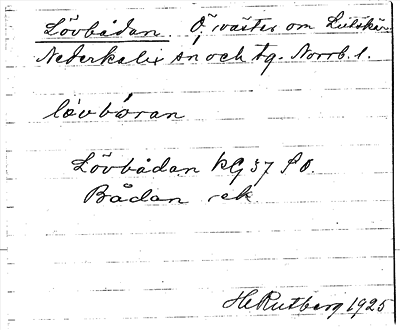 Lövbådan. Ö. väster om Lutskär.
Nederkalix sn och tg. Norrb. l.
lövbåran
Lövbådan kG 37 SO.
Bådan ek
H Rutberg 1925